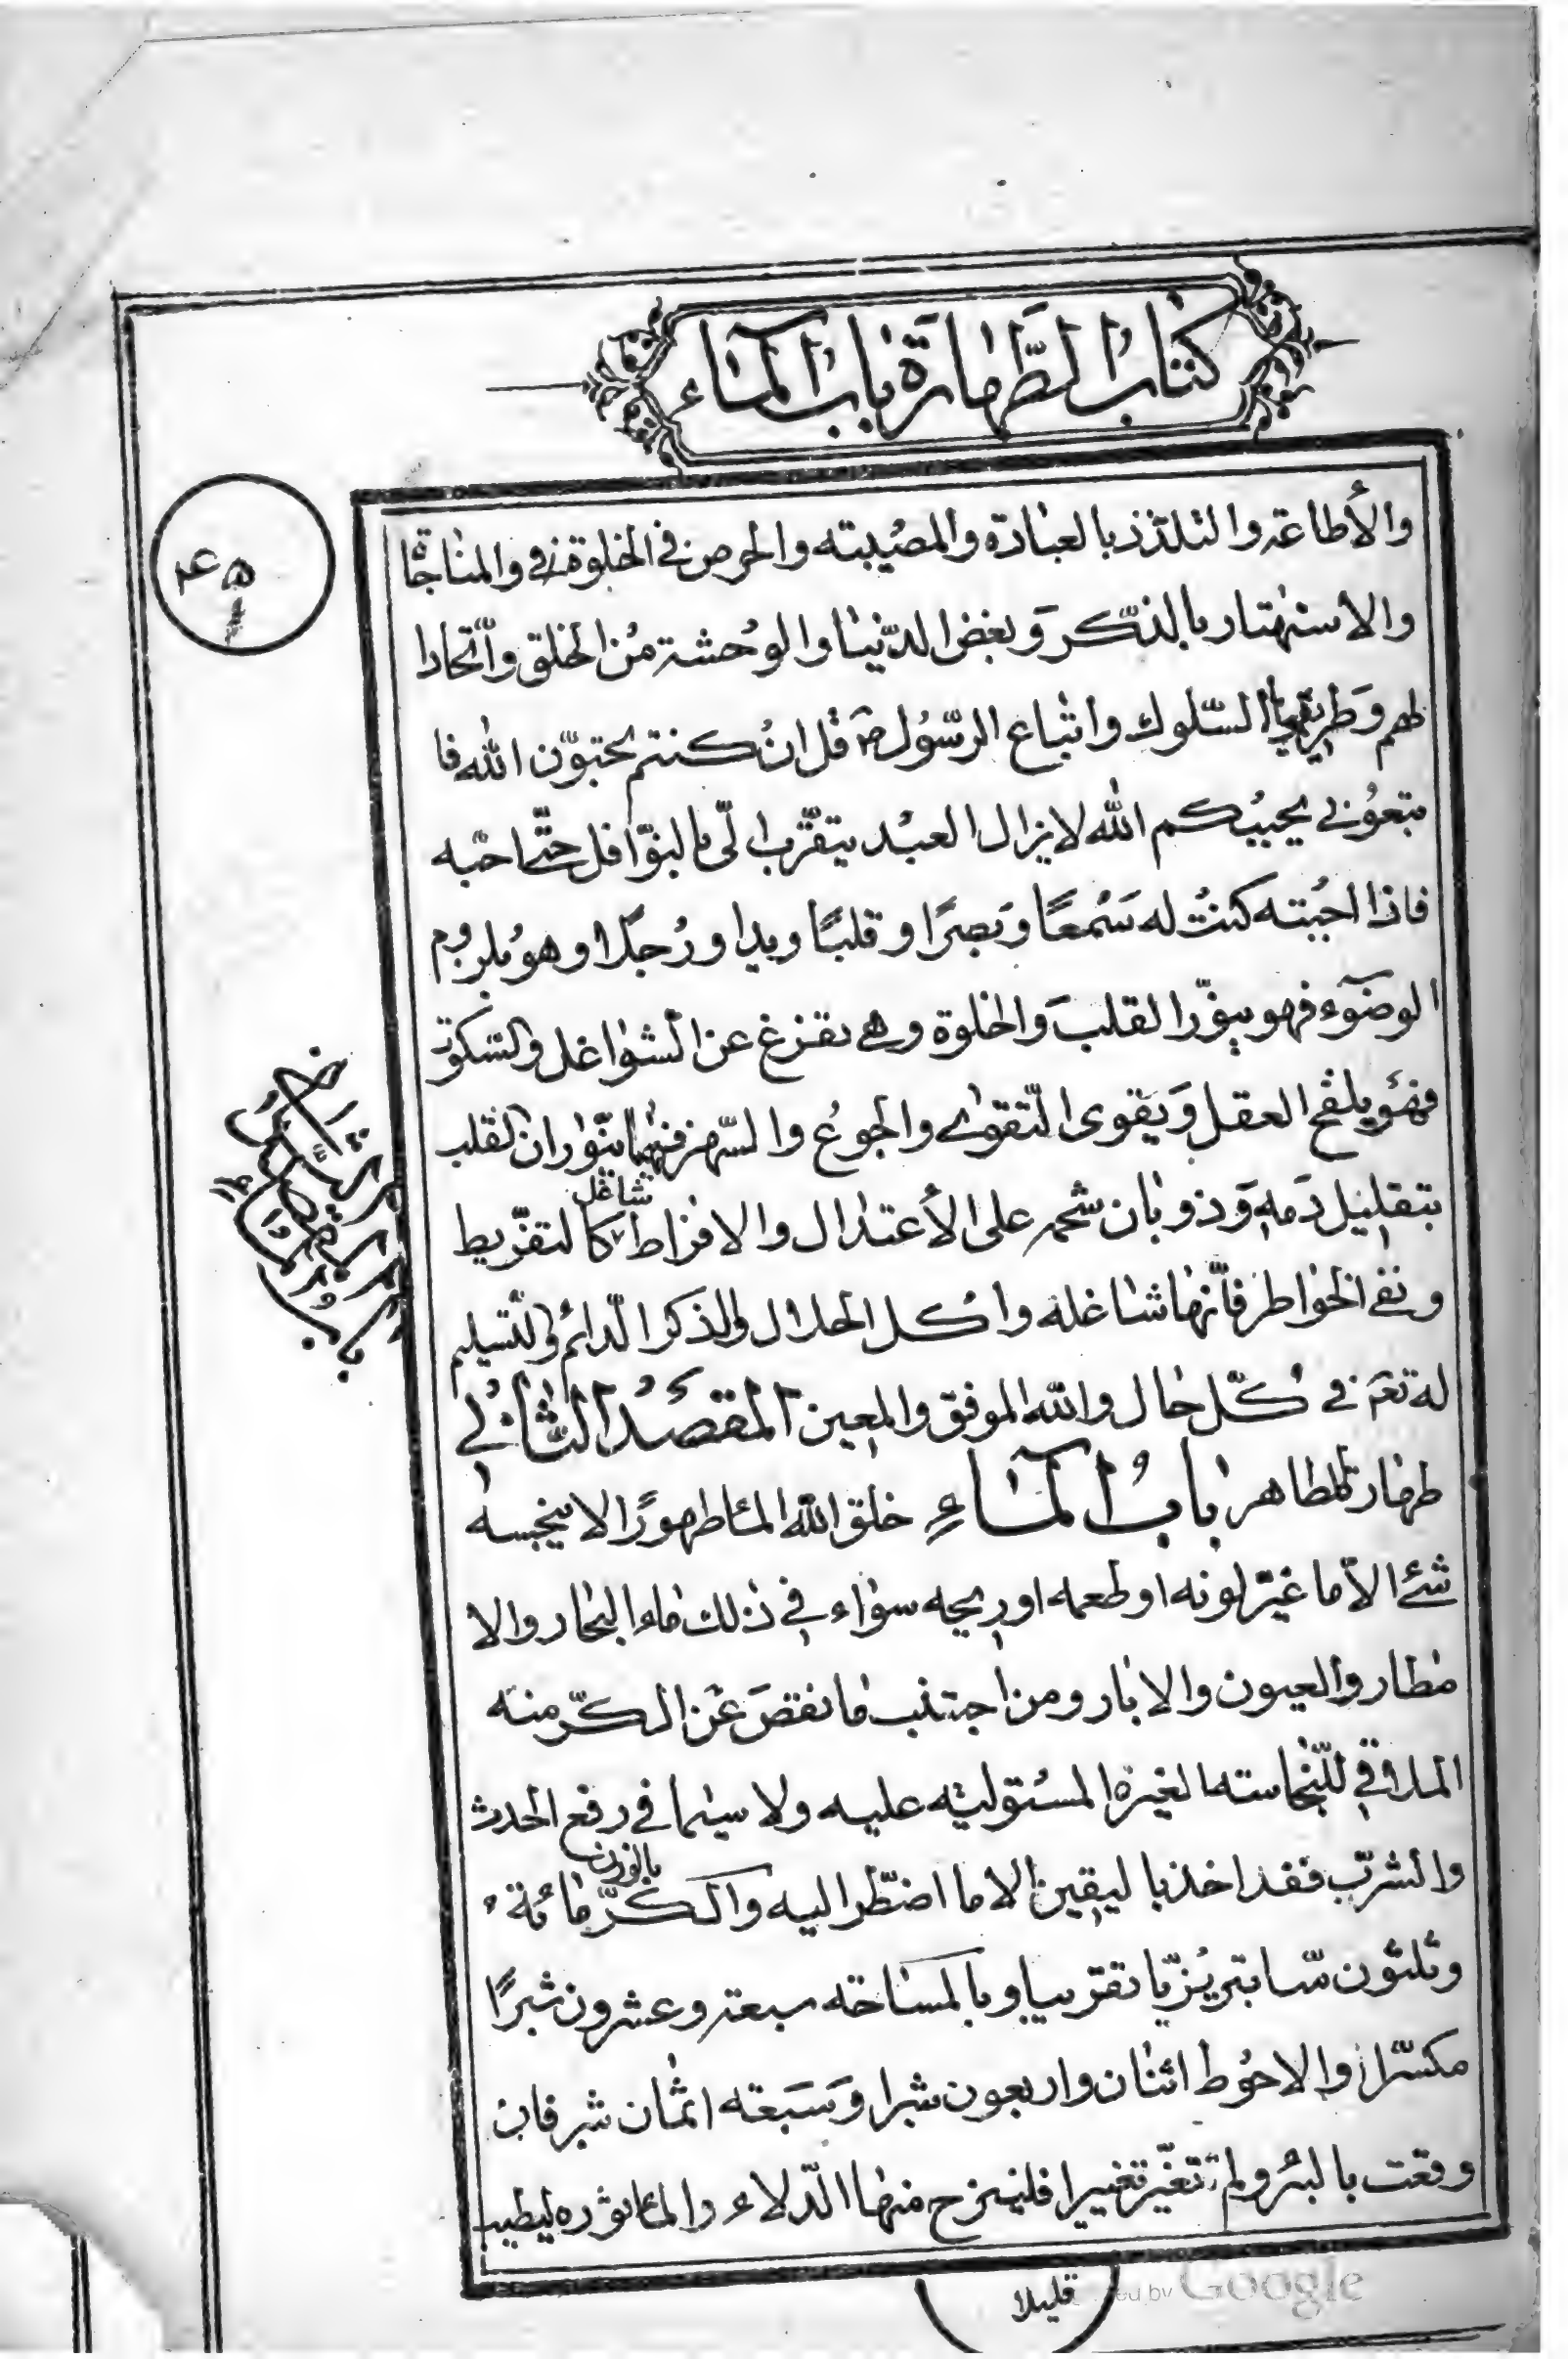 كتاب الطهارة باب المآء
والأطاعة والتلذذ بالعبادة والمصيبته والحرص في الخلوة في والمناجاة
والاستهتار بالذكر وبغض الدنيا والوحشة من الخلق واتحادا
لهم وطريقها السلوك واتباع الرسول ص قل ان كنتم تحبون الله فا
تبعوني يحببكم الله لا يزال العبد يتقرب الي بالنوافل حتى احبه
فاذا احببته كنت له سمعًا وبصرًا وقلبًا ويدا ورجلًا وهو
الوضوء فهو ينور القلب والخلوة وهي تفزغ عن الشواغل والسكوت
فهو يلقح العقل ويقوى التقوى والجوع والسهر فهما ينوران القلب
بتقليل دمه وذوبان شحمه على الأعتدال والافراط شاغل كا لتفريط
ونفي الخواطر فأنها شاغلة واكل الحلال والذكر الدائم والتسليم
له تعم في كل حال والله الموفق والمعين المقصد الثاني في
طهارة المظاهر باب المآء خلق الله الماء طهورًا لا ينجسه
شئ الا ما غيّر لونه او طعمه او ريحه سواء في ذلك ماء البحار والا
مطار والعيون والابار ومن اجتنب ما نقص عن الكر منه
الملاقي للنجاسته الغيره المستولية عليه ولا سيما في رفع الحدث
والشرب فقد اخذ باليقين الا ما اضطر اليه والكر بالوزن مائة
وثلثون منّا تبريزيّا تقريبا وبالمساحته سبعة وعشرون شبرًا
مكسرا والاحوط اثنان واربعون شبرا وسبعة اثمان شبر فان
وقعت بالبئر ولم تتغير تغييرا فلينزح منها الدلاء والماثوره ليطيب
قليلا
Google